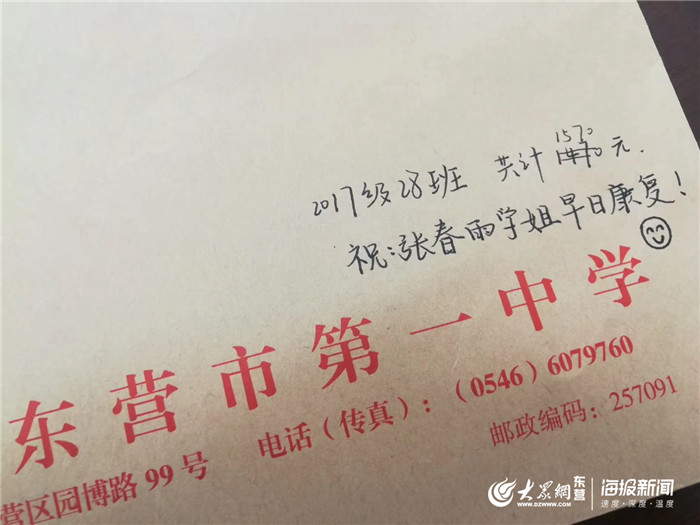 1570
2017级28班 共计 元.
祝:张春雨学姐早日康复!
东营市第一中学
电话(传真):(0546)6079760
营区园博路 99 号
邮政编码:257091
大众网 东营 海报新闻
WWW.DZWWW.COM 速度·深度·温度